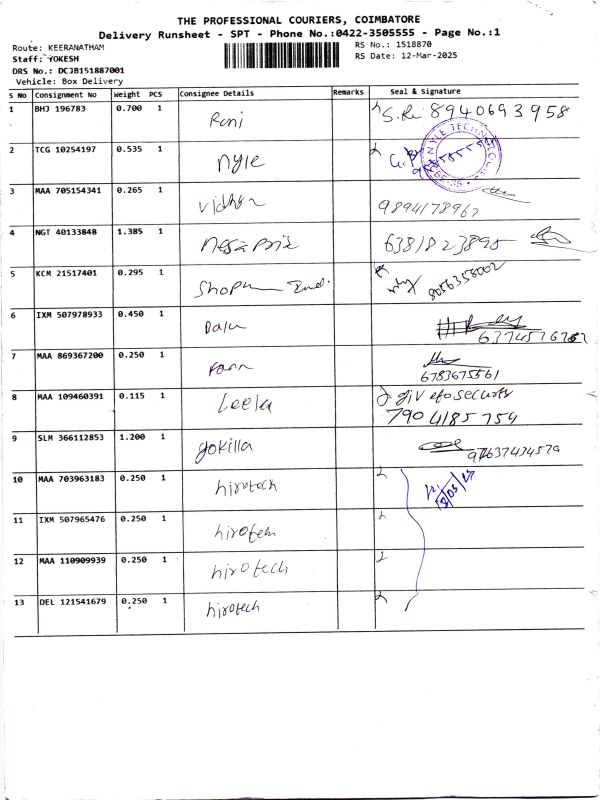 THE PROFESSIONAL COURIERS, COIMBATORE
Delivery Runsheet - SPT - Phone No.:0422-3505555 - Page No.:1
Route: KEERANATHAM
Staff: YOKESH
DRS No.: DCJB151887001
Vehicle: Box Delivery
RS No.: 1518870
RS Date: 12-Mar-2025
S No Consignment No Weight PCS Consignee Details Remarks Seal & Signature
1 BHJ 196783 0.700 1 Rani 8940693958
2 TCG 10254197 0.535 1 nyle
3 MAA 705154341 0.265 1 vidhya 9894178967
4 NGT 40133848 1.385 1 6381823895
5 KCM 21517401 0.295 1 8056358002
6 IXM 507978933 0.450 1 Balu
7 MAA 869367200 0.250 1 6783675561
8 MAA 109460391 0.115 1 Leela security
7904185754
9 SLM 366112853 1.200 1 gokilla
10 MAA 703963183 0.250 1 hirotech
11 IXM 507965476 0.250 1 hirotech
12 MAA 110909939 0.250 1 hirotech
13 DEL 121541679 0.250 1 hirotech